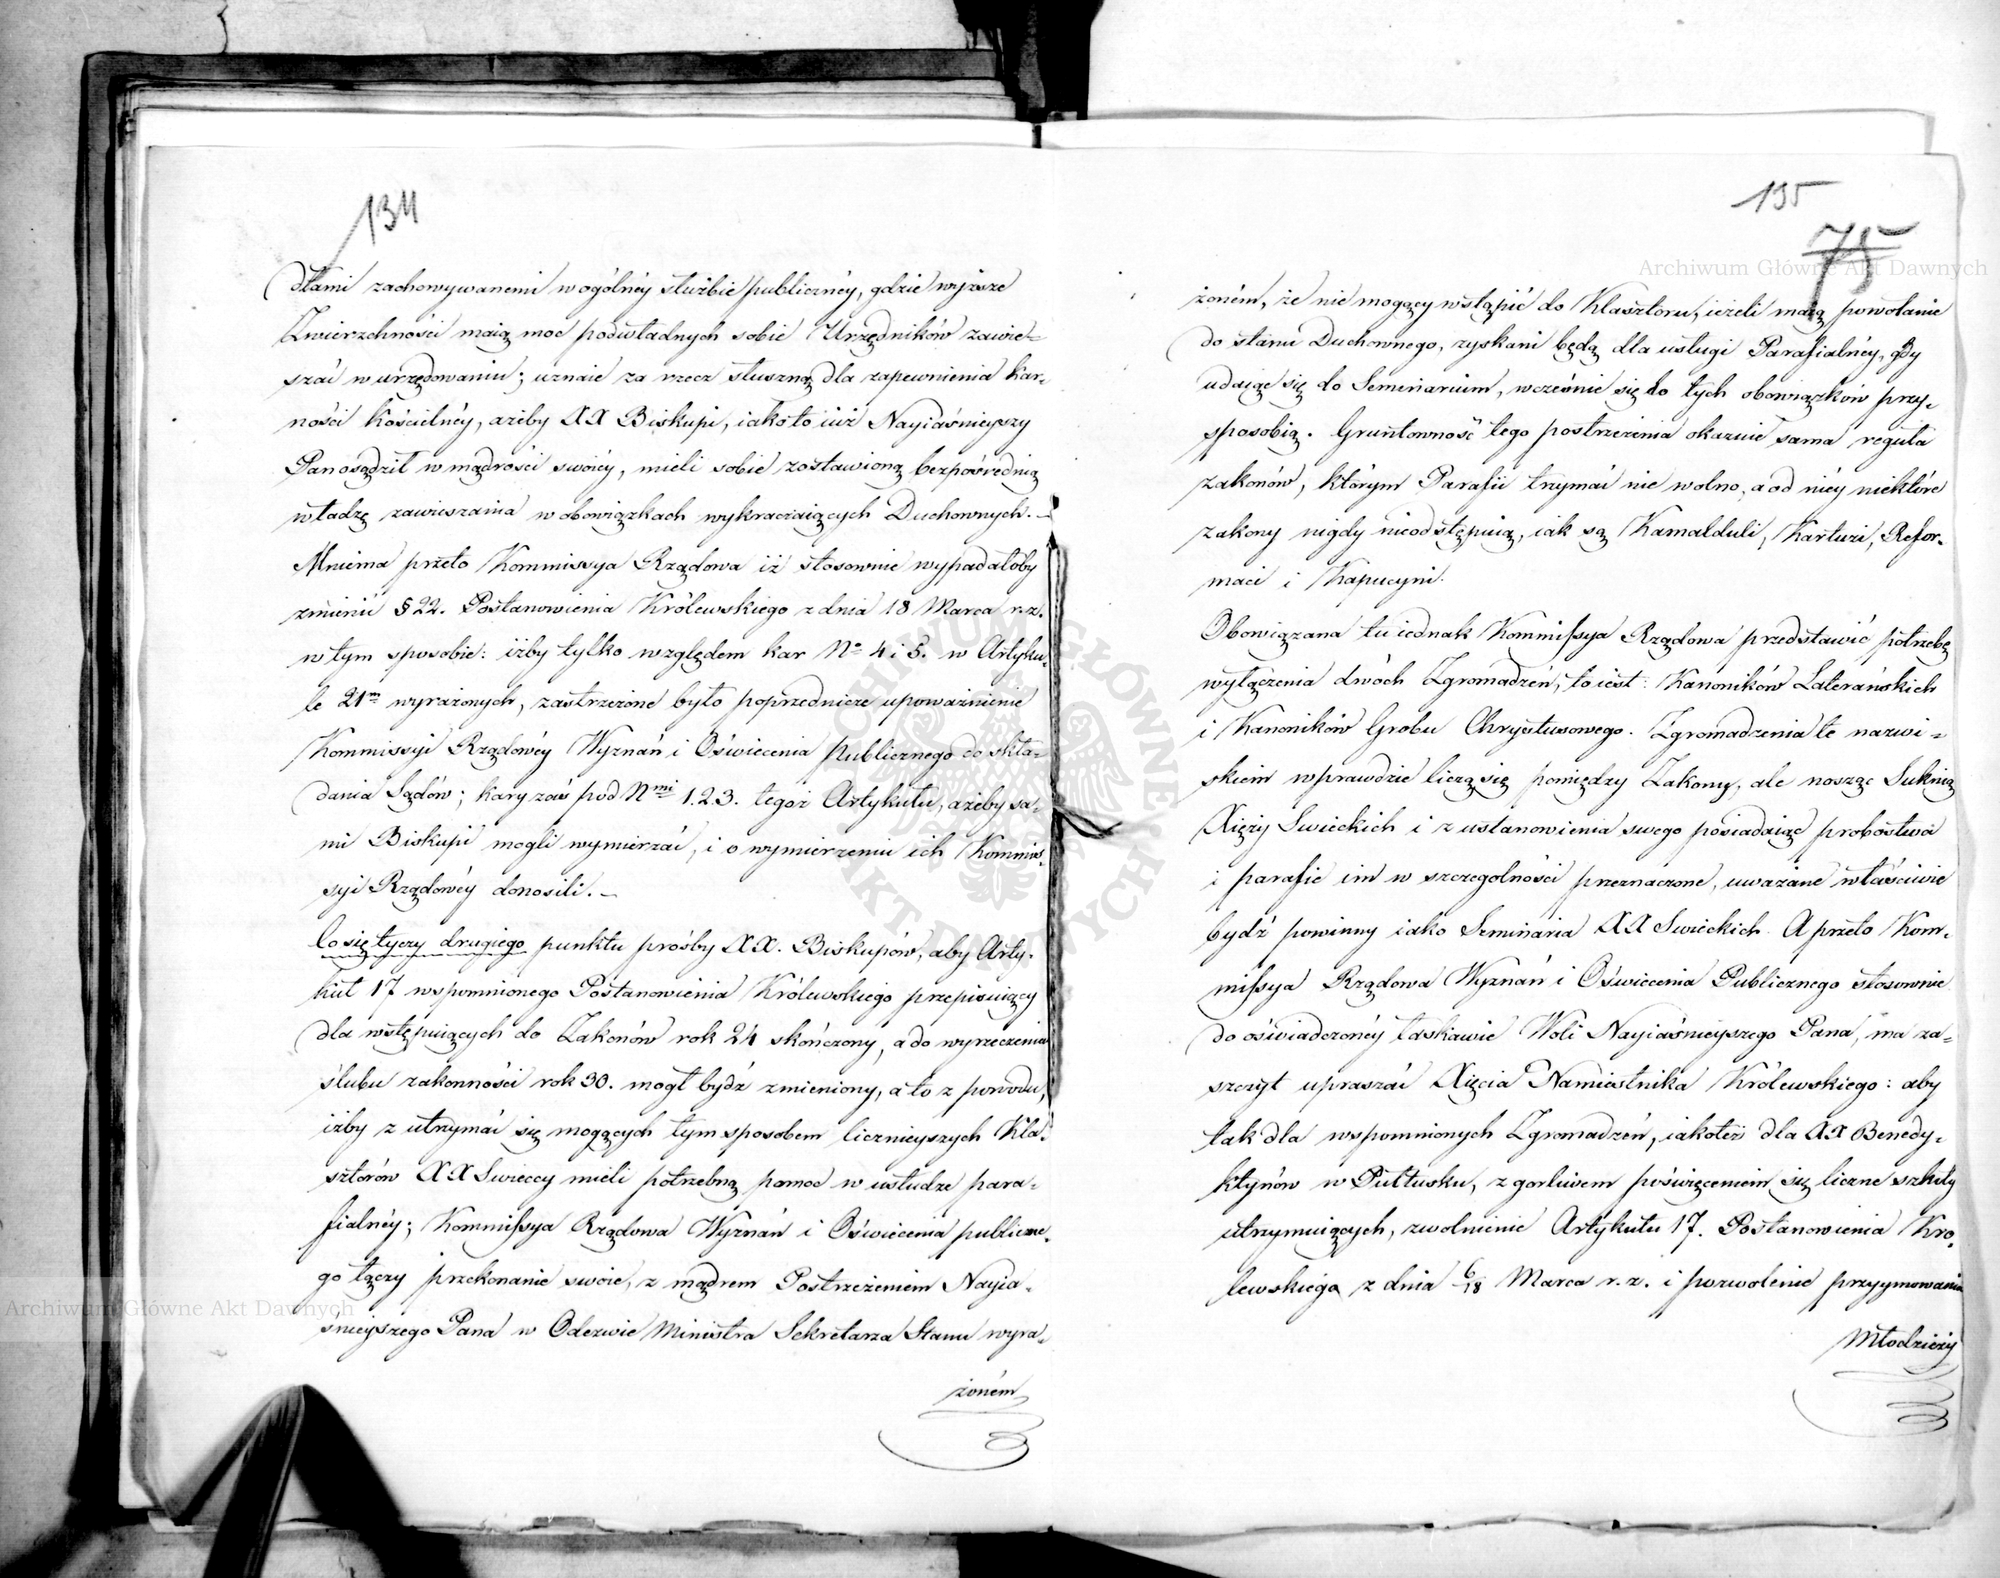 134
dłami zachowywanemi w ogólnéy służbie publicznéy, gdzie wyższe
Zwierzchności maią moc podwładnych sobie Urzędników zawie-
szać w urzędowaniu; uznaie za rzecz słuszną dla zapewnienia kar-
ności kościelnéy, ażeby XX Biskupi, iako to iuż Nayiaśnieyszy
Pan osądził w mądrości swoiéy, mieli sobie zostawioną bezpośrednią
władzę zawieszania w obowiązkach wykraczaiących Duchownych.-
Mniema przeto Kommissya Rządowa iż stosownie wypadałoby
zmienić § 22. Postanowienia Królewskiego z dnia 18 Marca r.z.
w tym sposobie: iżby tylko względem kar No 4 i 5. w Artyku-
le 21m wyrażonych, zastrzeżone było poprzednicze upoważnienie
Kommissyi Rządowéy Wyznań i Oświecenia Publicznego do skła-
dania Sądów; kary zaś pod Nmi 1.2.3. tegoż Artykułu, ażeby sa-
mi Biskupi mogli wymierzać, i o wymierzeniu ich Kommis-
syi Rządowéy donosili.-
Co się tyczy drugiego punktu prośby XX. Biskupów, aby Arty-
kuł 17 wspomnionego Postanowienia Królewskiego przepisuiący
dla wstępuiących do Zakonów rok 24 skończony, a do wyrzeczenia
ślubu zakonności rok 30. mogł bydź zmieniony, a to z powodu,
iżby z utrzymać się mogących tym sposobem licznieyszych Kla-
sztorów XX Swieccy mieli potrzebną pomoc w usłudze para-
fialnéy; Kommissya Rządowa Wyznań i Oświecenia publiczne-
go łączy przekonanie swoie, z mądrem Postrzeżeniem Nayia-
śnieyszego Pana w Odezwie Ministra Sekretarza Stanu wyra-
żoném
135
75
żoném, że nie mogący wstąpić do Klasztoru, ieżeli maią powołanie
do stanu Duchownego, zyskani będą dla usługi Parafialnéy, gdy
udaiąc się do Seminarium, wcześnie się do tych obowiązków przy-
sposobią. Gruntowność tego postrzeżenia okazuie sama reguła
zakonów, którym Parafii trzymać nie wolno, a od niéy niektóre
zakony nigdy nieodstępuią, iak są Kamalduli, Kartuzi, Refor-
maci i Kapucyni.
Obowiązana tu iednak Kommissya Rządowa przedstawić potrzebę
wyłączenia dwóch Zgromadzeń, to iest: Kanoników Laterańskich
i Kanoników Grobu Chrystusowego. Zgromadzenia te nazwi-
skiem wprawdzie liczą się pomiędzy Zakony, ale nosząc Suknią
Xięży Swieckich i z ustanowienia swego posiadaiąc probostwa
i parafie im w szczególności przeznaczone, uważane właściwie
bydź powinny iako Seminaria XX Swieckich. A przeto Kom-
missya Rządowa Wyznań i Oświecenia Publicznego stosownie
do oświadczonéy łaskawie Woli Nayiaśnieyszego Pana, ma za-
szczyt upraszać Xięcia Namiestnika Królewskiego: aby
tak dla wspomnionych Zgromadzeń, iakoteż dla XX Benedy-
ktynów w Pułtusku, z gorliwem poświęceniem się liczne szkoły
utrzymuiących, zwolnienie Artykułu 17. Postanowienia Kro-
lewskiego z dnia 6/18 Marca r.z. i pozwolenie przyymowania
Młodzieży
Archiwum Główne Akt Dawnych
Archiwum Główne Akt Dawnych
ARCHIWUM GŁÓWNE AKT DAWNYCH